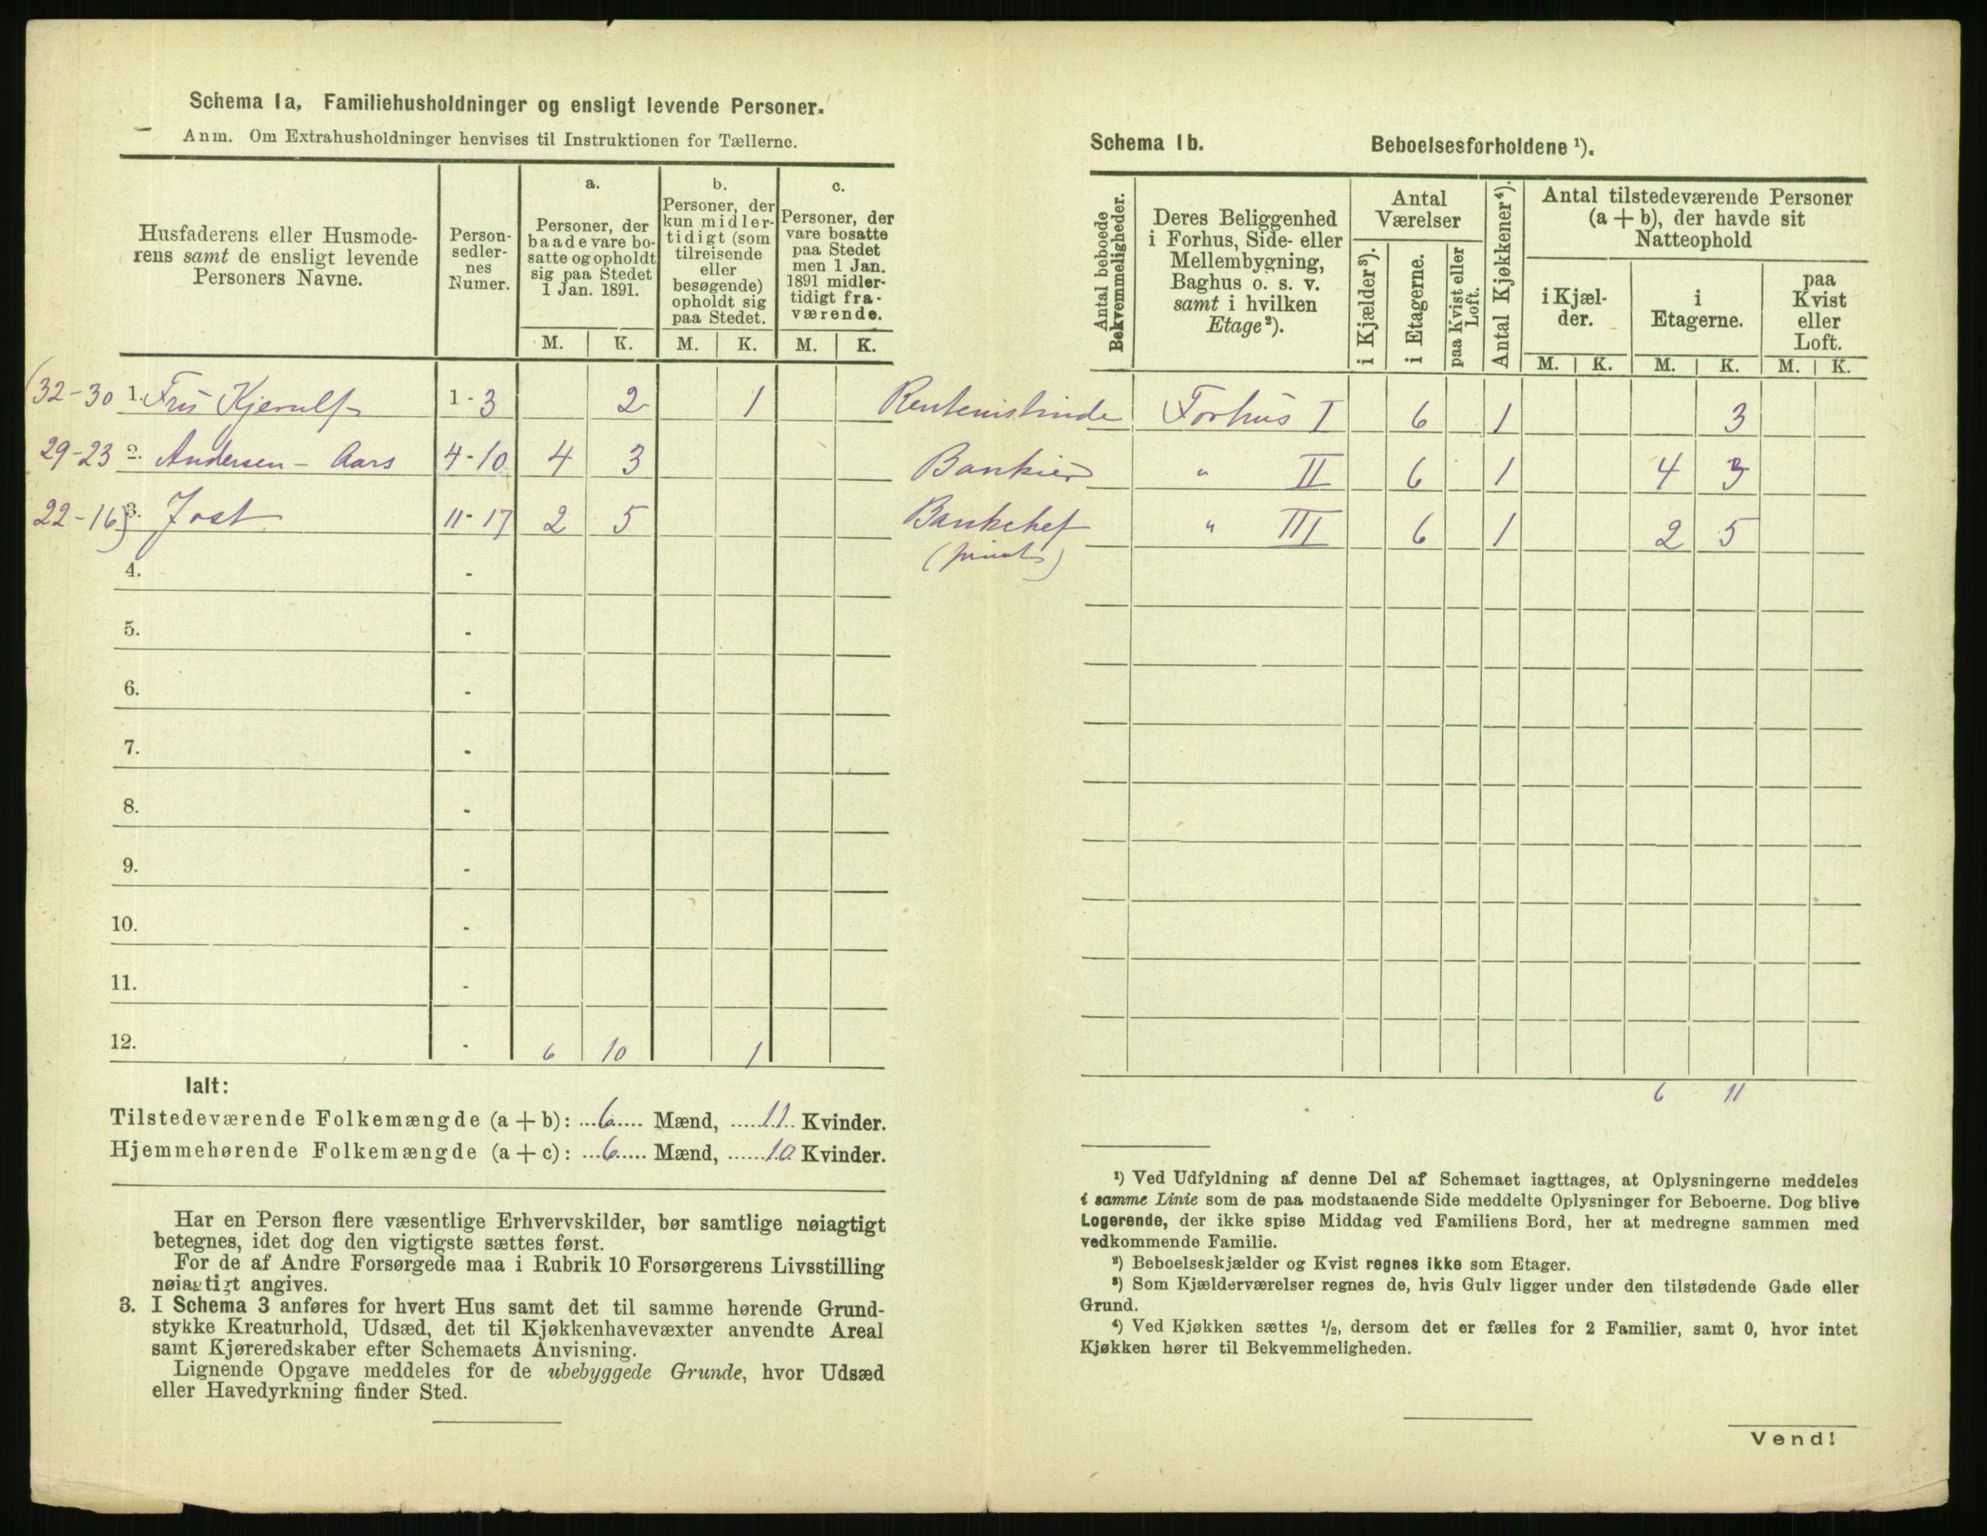 Schema 1a. Familiehusholdninger og ensligt levende Personer.
Anm. Om Extrahusholdninger henvises til Instruktionen for Tællerne.
Husfaderens eller Husmode-
rens samt de ensligt levende
Personers Navne.
Person-
sedler-
nes
Numer.
a.
Personer, der
baade vare bo-
satte og opholdt
sig paa Stedet
1 Jan. 1891.
b.
Personer, der
kun midler-
tidigt (som
tilreisende
eller
besøgende)
opholdt sig
paa Stedet.
c.
Personer, der
vare bosatte
paa Stedet
men 1 Jan.
1891 midler-
tidigt fra-
værende.
M. K. M. K. M. K.
(32-30 1. Kjerulf 1-3 2 1
29-23 2. Andersen-Aars 4-10 4 3
22-16) 3. Jost 11-17 2 5
4. -
5. -
6. -
7. -
8. -
9. -
10. -
11. -
12. - 6 10 1
Ialt:
Tilstedeværende Folkemængde (a+b): 6 Mænd, 11 Kvinder.
Hjemmehørende Folkemængde (a+c): 6 Mænd, 10 Kvinder.
Har en Person flere væsentlige Erhvervskilder, bør samtlige nøiagtigt
betegnes, idet dog den vigtigste sættes først.
For de af Andre Forsørgede maa i Rubrik 10 Forsørgerens Livsstilling
nøiagtigt angives.
3. I Schema 3 anføres for hvert Hus samt det til samme hørende Grund-
stykke Kreaturhold, Udsæd, det til Kjøkkenhavevæxter anvendte Areal
samt Kjøreredskaber efter Schemaets Anvisning.
Lignende Opgave meddeles for de ubebyggede Grunde, hvor Udsæd
eller Havedyrkning finder Sted.
Schema 1b. Beboelsesforholdene ¹).
Antal beboede
Bekvemmeligheder.
Deres Beliggenhed
i Forhus, Side- eller
Mellembygning,
Baghus o. s. v.
samt i hvilken
Etage ²).
Antal
Værelser
i Kjælder ³).
i Etagerne.
paa Kvist eller
Loft.
Antal Kjøkkener ⁴).
Antal tilstedeværende Personer
(a + b), der havde sit
Natteophold
i Kjæl-
der.
i
Etagerne.
paa
Kvist
eller
Loft.
M. K. M. K. M. K.
Rentenistinde Forhus I 6 1 3
Bankier " II 6 1 4 3
Bankchef " III 6 1 2 5
(privat)
6 11
¹) Ved Udfyldning af denne Del af Schemaet iagttages, at Oplysningerne meddeles
i samme Linie som de paa modstaaende Side meddelte Oplysninger for Beboerne. Dog blive
Logerende, der ikke spise Middag ved Familiens Bord, her at medregne sammen med
vedkommende Familie.
²) Beboelseskjælder og Kvist regnes ikke som Etager.
³) Som Kjælderværelser regnes de, hvis Gulv ligger under den tilstødende Gade eller
Grund.
⁴) Ved Kjøkken sættes ½, dersom det er fælles for 2 Familier, samt 0, hvor intet
Kjøkken hører til Bekvemmeligheden.
Vend!